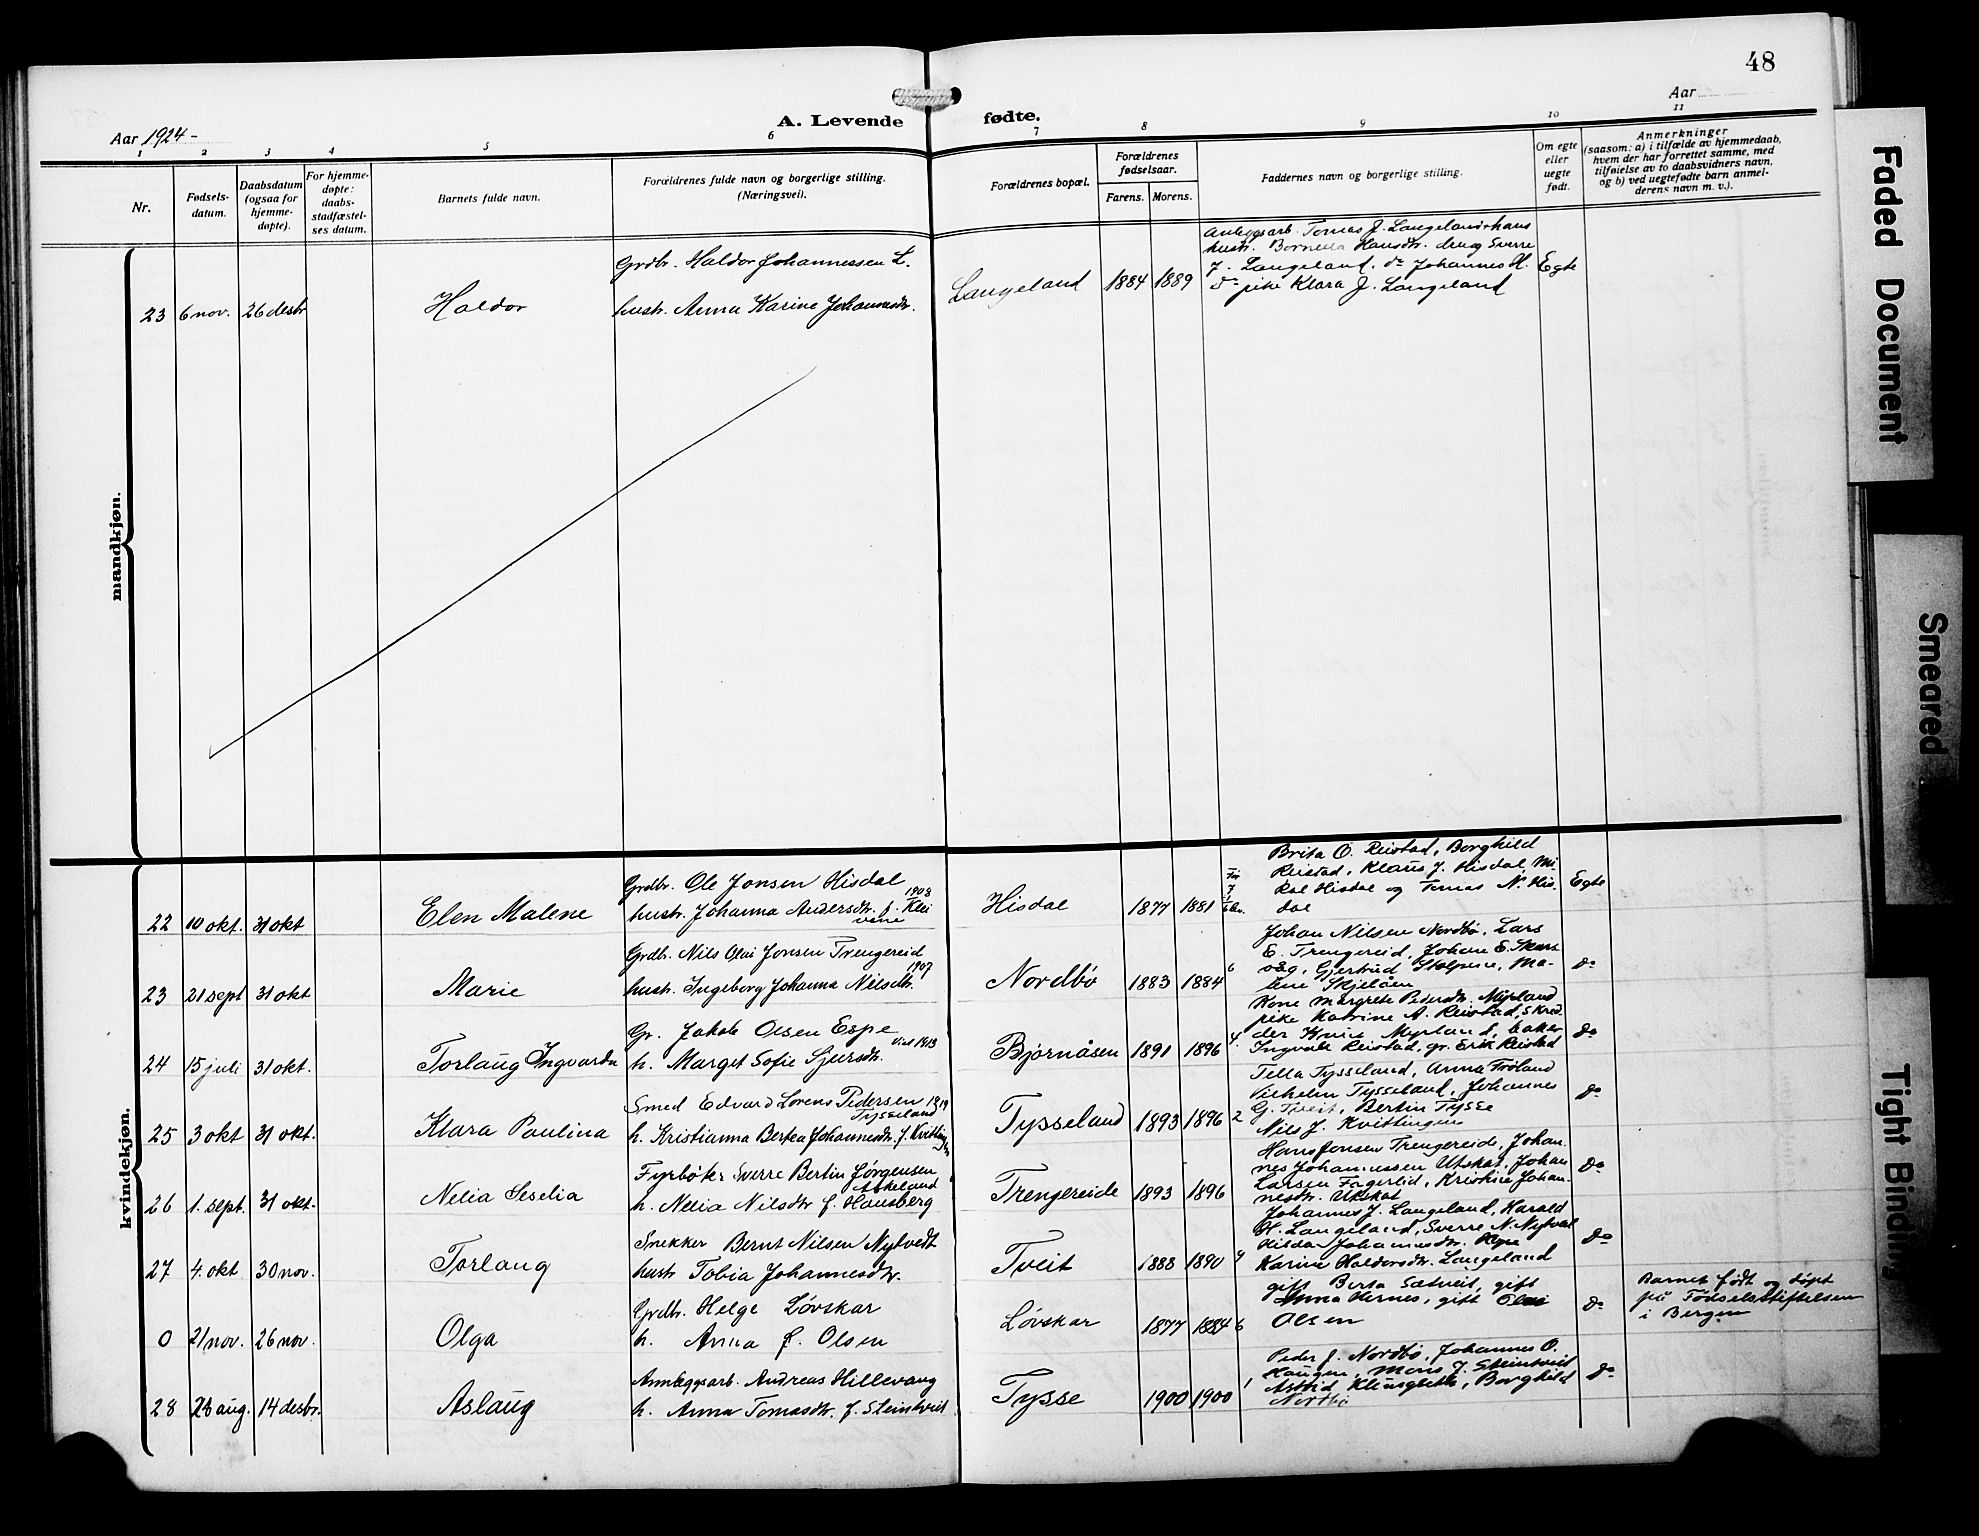 48
Aar 1924 -
A. Levende
fødte.
Aar
1 2 3 4 5 6 7 8 9 10 11
Nr.
Fødsels-
datum.
Daabsdatum
(ogsaa for
hjemme-
døpte).
For hjemme-
døpte:
daabs-
stadfæstel-
ses datum.
Barnets fulde navn.
Forældrenes fulde navn og borgerlige stilling.
(Næringsvei).
Forældrenes bopæl.
Forældrenes
fødselsaar.
Farens. Morens.
Faddernes navn og borgerlige stilling.
Om egte
eller
uegte
født.
Anmerkninger
(saasom: a) i tilfælde av hjemmedaab,
hvem der har forrettet samme, med
tilføielse av to daabsvidners navn,
og b) ved uegtefødte barn anmel-
derens navn m. v.).
mandkjøn.
23 6 nov. 26 desbr
Haldor
Grdbr. Haldor Johannessen L.
hustr. Anna Karine Johannesdr.
Langeland 1884 1889
Anleggsarb. Tomas J. Langeland & hans
hustr. Hansdr. Sverre
J. Langeland. do Johannes H.
do pike Klara J. Langeland
Egte
kvindekjøn.
22 10 okt. 31 okt
Elen Malene
Grdbr. Ole Jonsen Hisdal
1903
hustr. Johanna Andersdr. f. Klei
vene
Hisdal 1877 1881
Brita O. Reistad, Borghild
Reistad, Klaus J. Hisdal, Mi
kal Hisdal og Tomas N. His
dal
Egte
23 21 sept 31 okt
Marie
Grdbr. Nils Olai Jonsen Trengereid
1907
hustr. Ingeborg Johanna Nilsdtr.
Nordbø 1883 1884 6
Johan Nilsen Nordbø, Lars
E. Trengereid, Johan E. Skars
våg, Gjertrud Ma-
lene Skjelåen
do
24 15 juli 31 okt.
Torlaug Ingvarda
Gr. Jakob Olsen Espe
viet 1913
h. Marget Sofie Sjursdr.
Bjørnåsen 1891 1896 4.
Kone Margrete Pedersdr. Myrland
pike Katrine A. Reistad, skred
der Knut Myrland, baker
Ingvald Reistad, gr. Erik Reistad
do
25 3 okt 31 okt.
Klara Paulina
Smed Edvard Lorens Pedersen 1919
Tysseland
h. Kristianna Bertea Johannesdr. f. Kvittingen
Tysseland 1893 1896 2
Tella Tysseland, Anna Frøland
Vilhelm Tysseland, Johannes
G. Tveit, Bertin Tysse
Nils J. Kvittingen
do
26 1. sept. 31 okt.
Nelia Seselia
Fyrbøter Sverre Bertin Jørgensen
Askeland
h. Nelia Nilsdtr f. Hausberg
Trengereide 1893 1896
Hans Jonsen Trengereide, Johan
nes Johannessen Utskot, Johan
Larsen Fagerlid, Kristine Johan-
nesdr. Utskot
do
27 4. okt 30 nov.
Torlaug
Snekker Bernt Nilsen Nytvedt
hustr Tobia Johannesdtr.
Tveit 1888 1890 4
Johannes J. Langeland, Harald
H. Langeland, Sverre N. Nytved
Hilda Johannesdr.
Karine Haldorsdr. Langeland
do
0 21 nov. 26 nov.
Olga
Grdbr. Helge Løvskar
h. Anna f. Olsen
Løvskar 1877 1884 6
gift Berta Sætveit, gift
Anna Hernes, gift Olai
Olsen
do
Barnet født og døpt
på Fødselsstiftelsen
i Bergen
28 28 aug. 14 desbr.
Aslaug
Annleggsarb. Andreas Hillevang
h. Anna Tomasdr. f. Steintveit
Tysse 1900 1900 1
Peder J. Nordbø, Johannes O.
Haugen, Mons J. Steintveit
Astrid Borghild
Nordbø
do
Faded Document
Smeared
Tight Binding